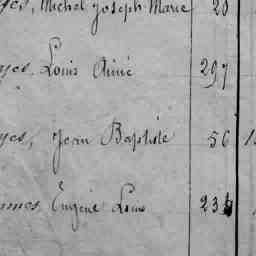 Michel Joseph Marie 20
Louis Aimé 297
Jean Baptiste 56
Eugène Louis 23